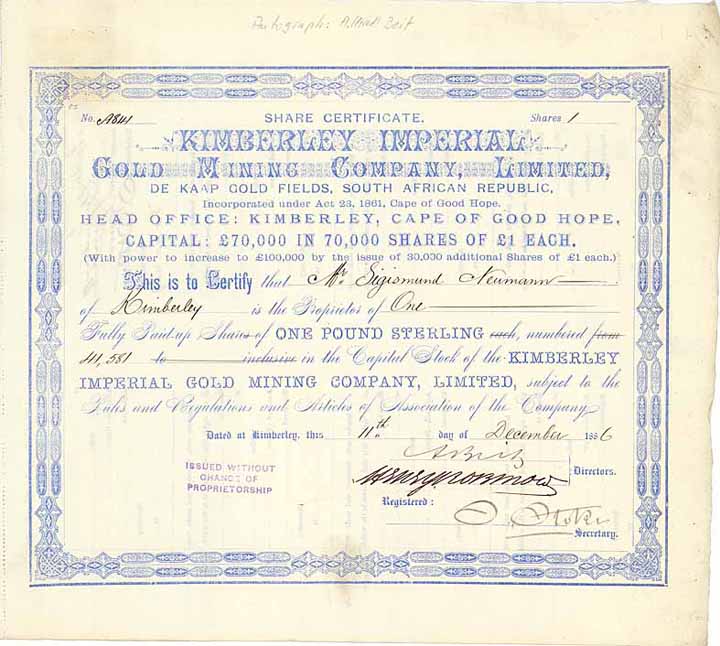 Autograph: Alfred Beit
No. A841 SHARE CERTIFICATE. Shares 1
KIMBERLEY IMPERIAL
GOLD MINING COMPANY, LIMITED,
DE KAAP GOLD FIELDS, SOUTH AFRICAN REPUBLIC,
Incorporated under Act 23, 1861, Cape of Good Hope.
HEAD OFFICE: KIMBERLEY, CAPE OF GOOD HOPE.
CAPITAL: £70,000 IN 70,000 SHARES OF £1 EACH.
(With power to increase to £100,000 by the issue of 30,000 additional Shares of £1 each.)
This is to Certify that Mr. Sigismund Neumann
of Kimberley is the Proprietor of One
Fully Paid-up Shares of ONE POUND STERLING each, numbered from
41,581 to inclusive in the Capital Stock of the KIMBERLEY
IMPERIAL GOLD MINING COMPANY, LIMITED, subject to the
Rules and Regulations and Articles of Association of the Company
Dated at Kimberley, this 11th. day of December 1886
ABeit
Directors.
ISSUED WITHOUT
CHANGE OF
PROPRIETORSHIP
Registered:
Secretary.